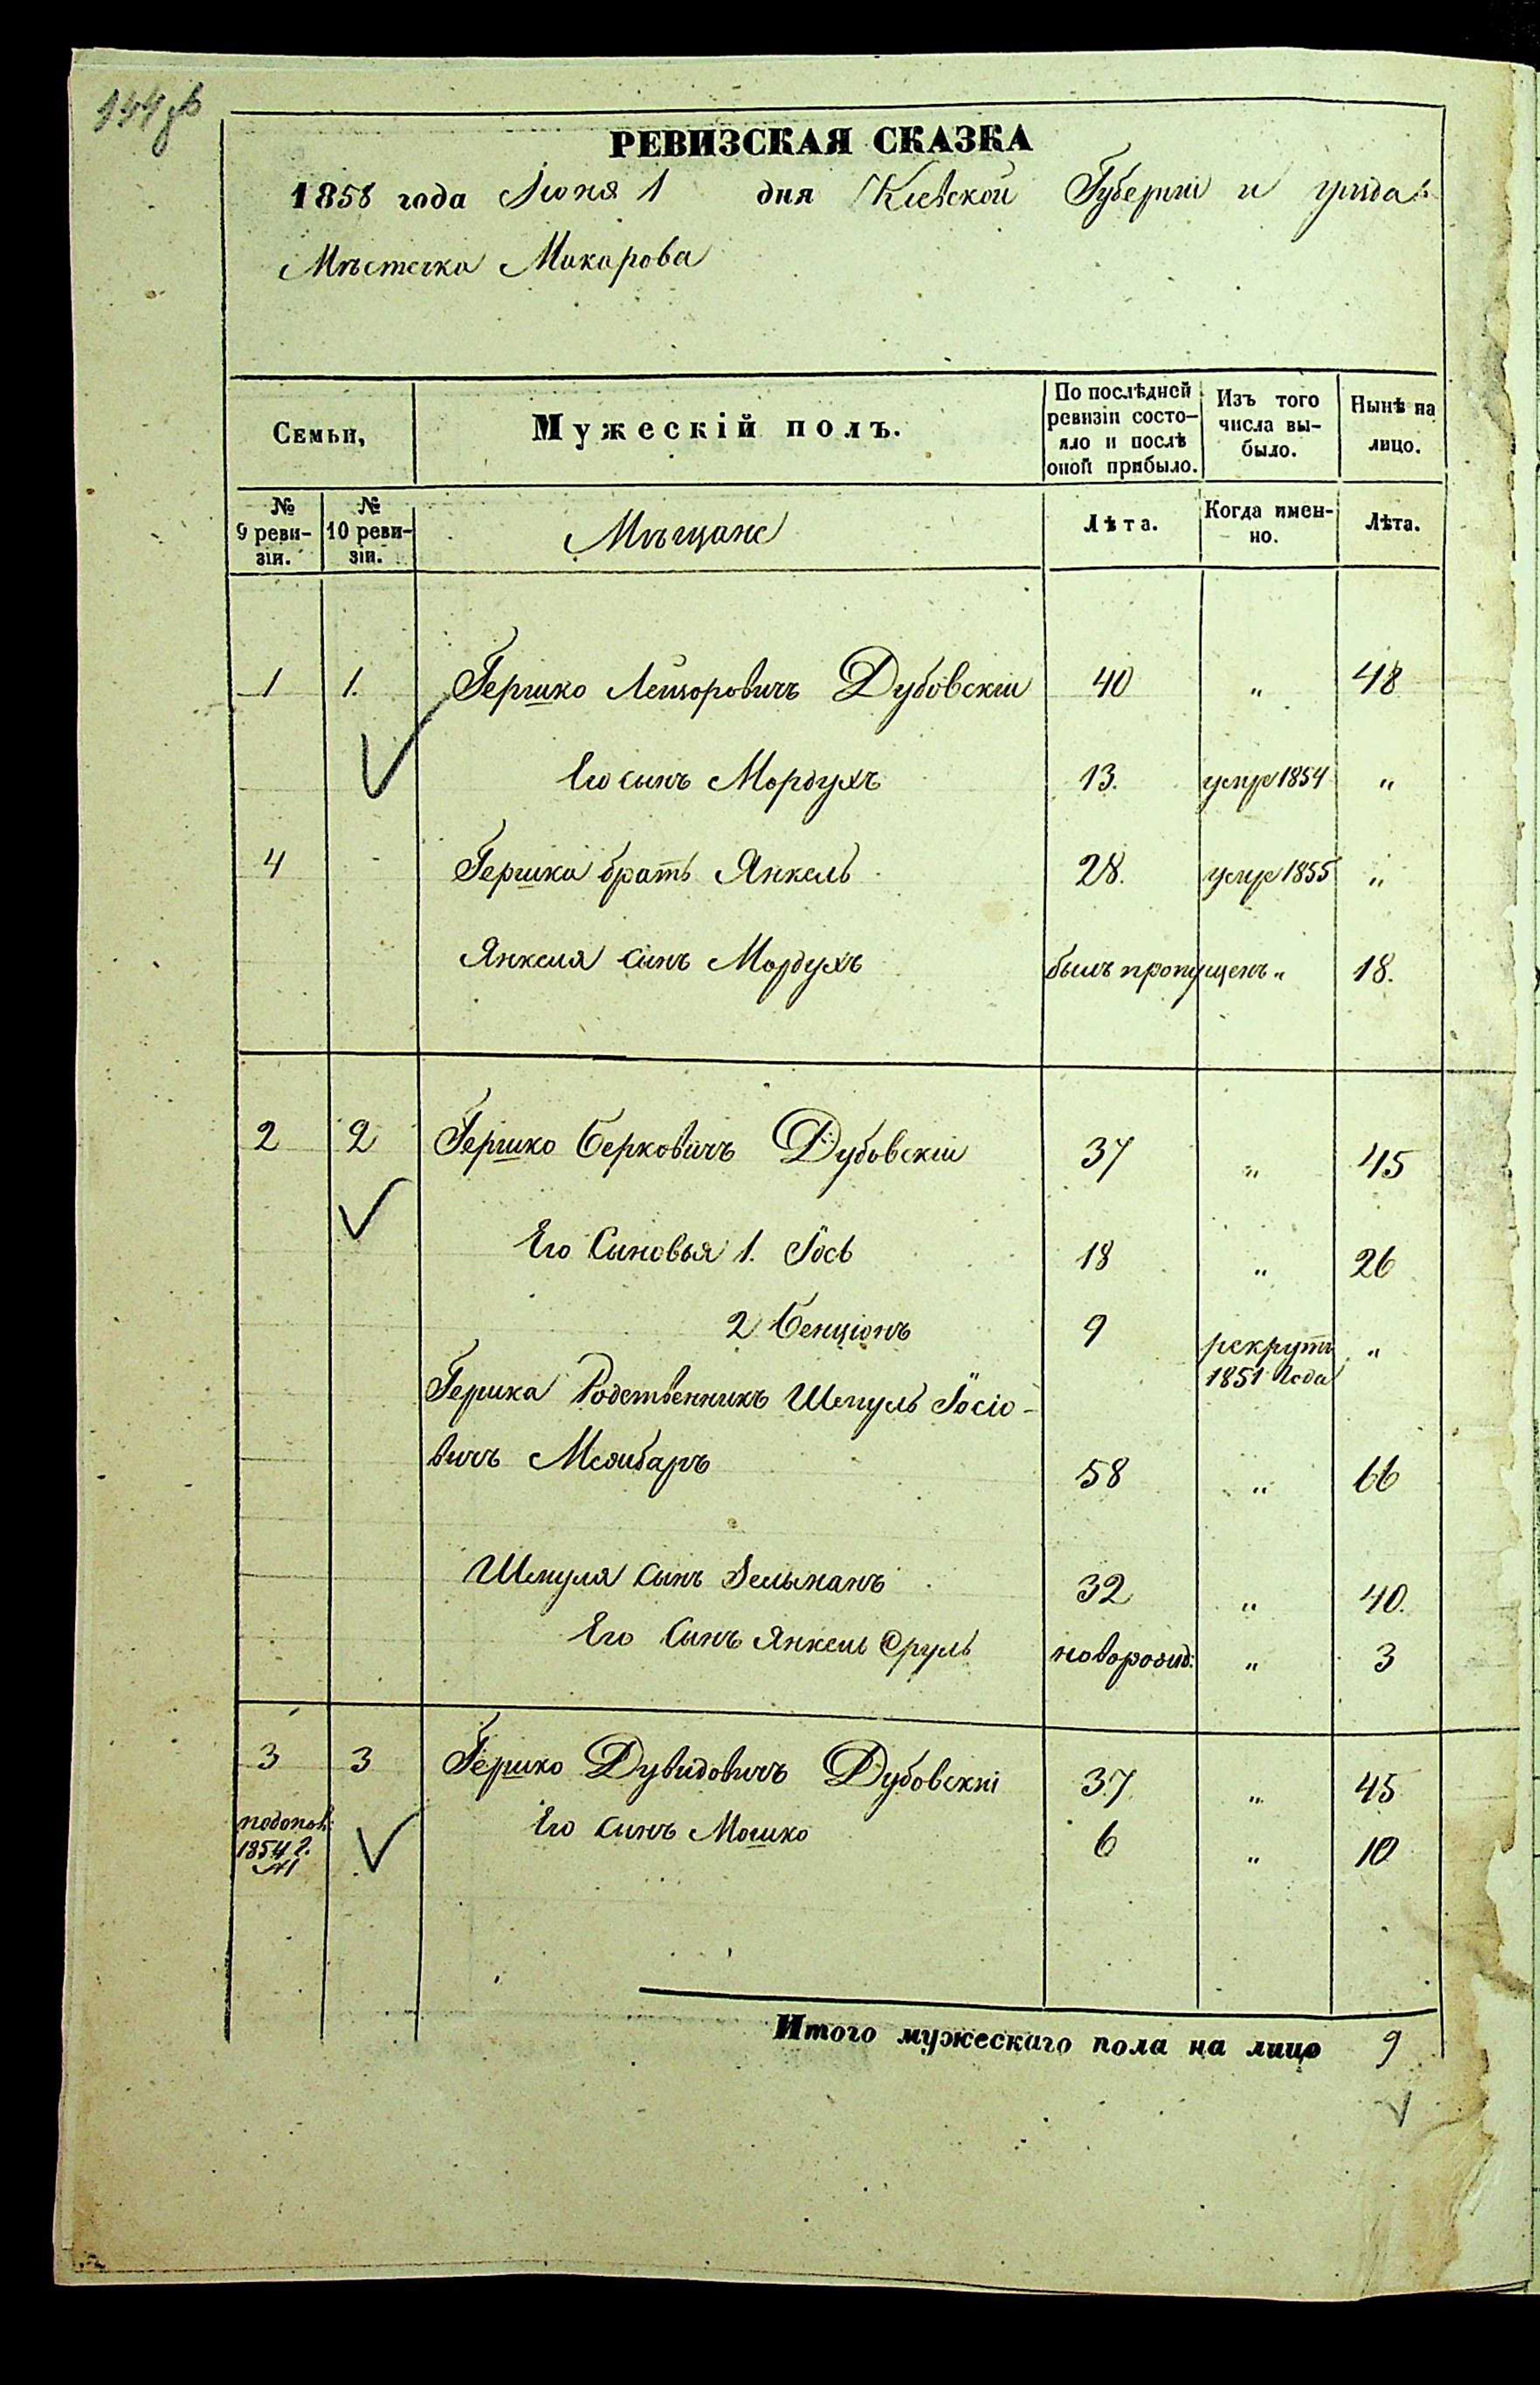 144 об
РЕВИЗСКАЯ СКАЗКА
1858 года Июня 1 дня Кіевской Губерніи и уѣзда
Мѣстечка Макарова
Семьи,
Мужескій полъ.
По послѣдней ревизіи состояло и послѣ оной прибыло.
Изъ того числа выбыло.
Нынѣ на лицо.
№ 9 ревизіи.
№ 10 ревизіи.
Мѣщане
Лѣта.
Когда именно.
Лѣта.
1 1. Гершко Лейзоровичъ Дубовскій 40 " 48
Его сынъ Мордухъ 13. умре 1854 "
4 Гершка братъ Янкель 28. умре 1855 "
Янкеля сынъ Мордухъ былъ пропущенъ " 18.
2 2 Гершко Берковичъ Дубовскій 37 " 45
Его Сыновья 1. Іось 18 " 26
2 Бенціонъ 9 рекрутъ "
1851 года
Гершка Родственникъ Шмуль Іосіо-
вичъ Меджибаръ 58 " 66
Шмуля сынъ Зельманъ 32 " 40.
Его Сынъ Янкель Сруль новорожд: " 3
3 3 Гершко Дувидовичъ Дубовскій 37 " 45
пополн:
1854 г.
№1
Его сынъ Мошко 6 " 10
Итого мужескаго пола на лицо 9